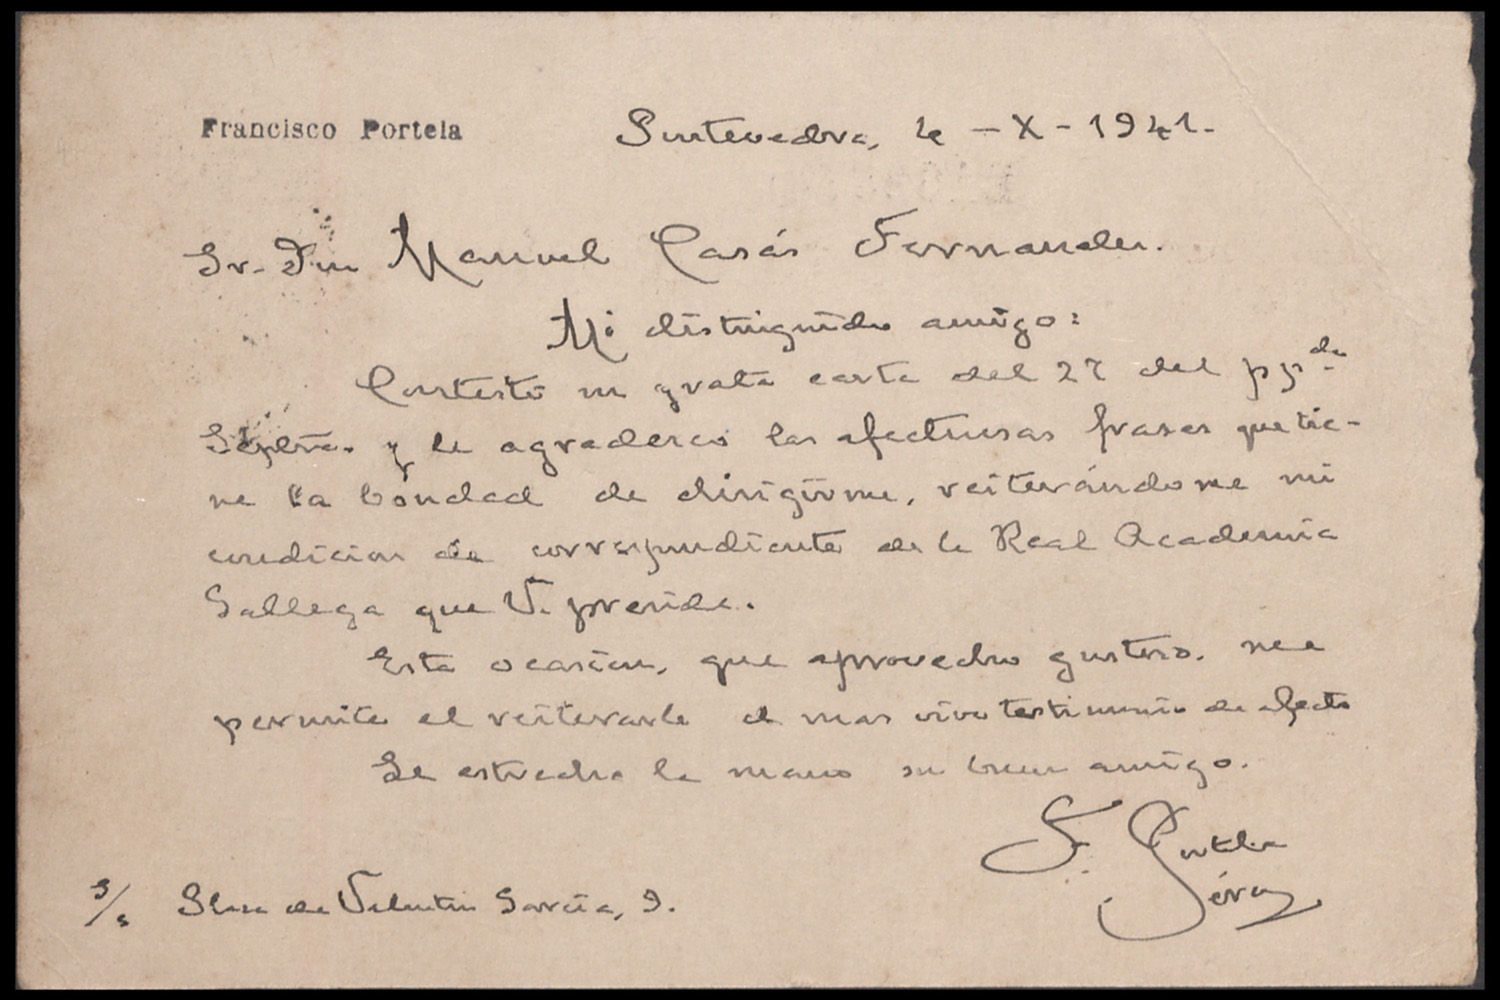 Francisco Portela
Pontevedra, 4 - X - 1941.-
Sr. Don Manuel Casás Fernandez.
Mi distinguido amigo:
Contesto su grata carta del 27 del ppdo.
Sepbre. y le agradezco las afectuosas frases que tie-
ne la bondad de dirigirme, reiterándome mi
condicion de correspondiente de la Real Academia
Gallega que V. preside.
Esta ocasion, que aprovecho gustoso, me
permite el reiterarle el mas vivo testimonio de afecto
Le estrecha la mano su buen amigo.
F. Portela
Pérez
s/c Plaza de Valentin Garcia, 9.